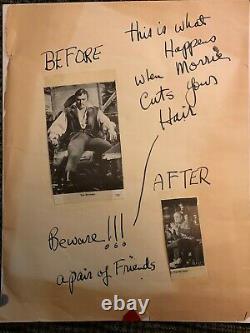 BEFORE
this is what
Happens
when Morrie
Cuts your
Hair
AFTER
Beware!!!
a pair of Friends